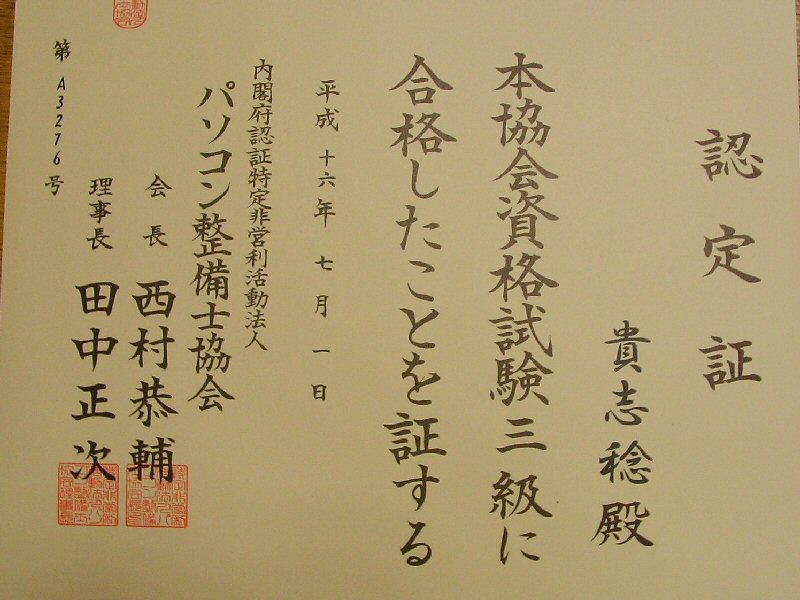 認定証
貴志稔殿
本協会資格試験三級に
合格したことを証する
平成十六年七月一日
内閣府認証特定非営利活動法人
パソコン整備士協会
会長 西村恭輔
理事長 田中正次
第A3276号